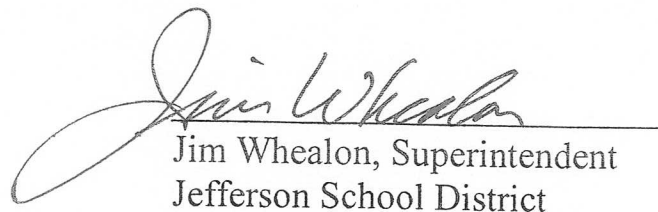 Jim Whealon
Jim Whealon, Superintendent
Jefferson School District